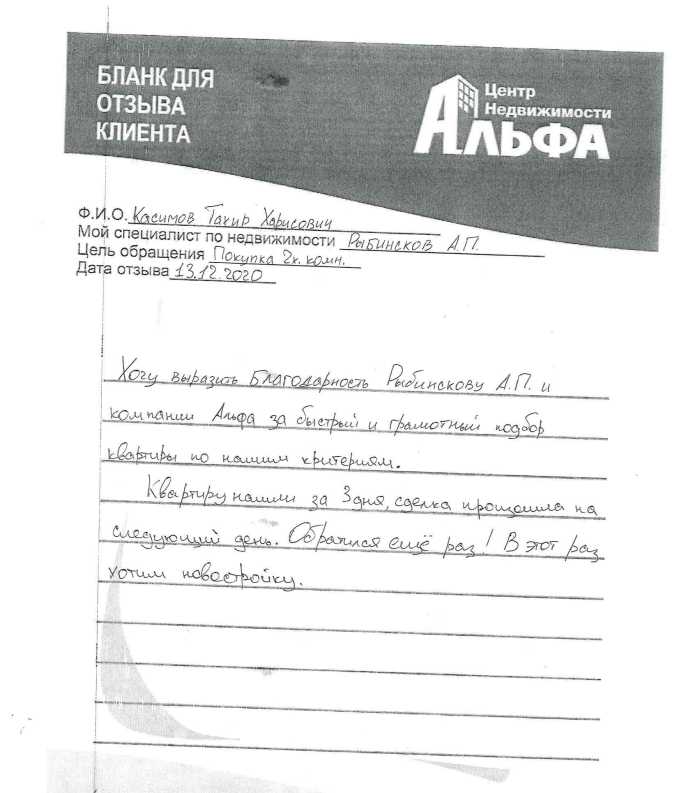 БЛАНК ДЛЯ
ОТЗЫВА
КЛИЕНТА
Центр
Недвижимости
АЛЬФА
Ф.И.О. Касимов Тахир Харисович
Мой специалист по недвижимости Рыбинсков А.П.
Цель обращения Покупка 2к. комн.
Дата отзыва 13.12.2020
Хочу выразить Благодарность Рыбинскову А.П. и
компании Альфа за быстрый и грамотный подбор
квартиры по нашим критериям.
Квартиру нашли за 3 дня, сделка прошла на
следующий день. Обратился ещё раз! В этот раз
хотим новостройку.